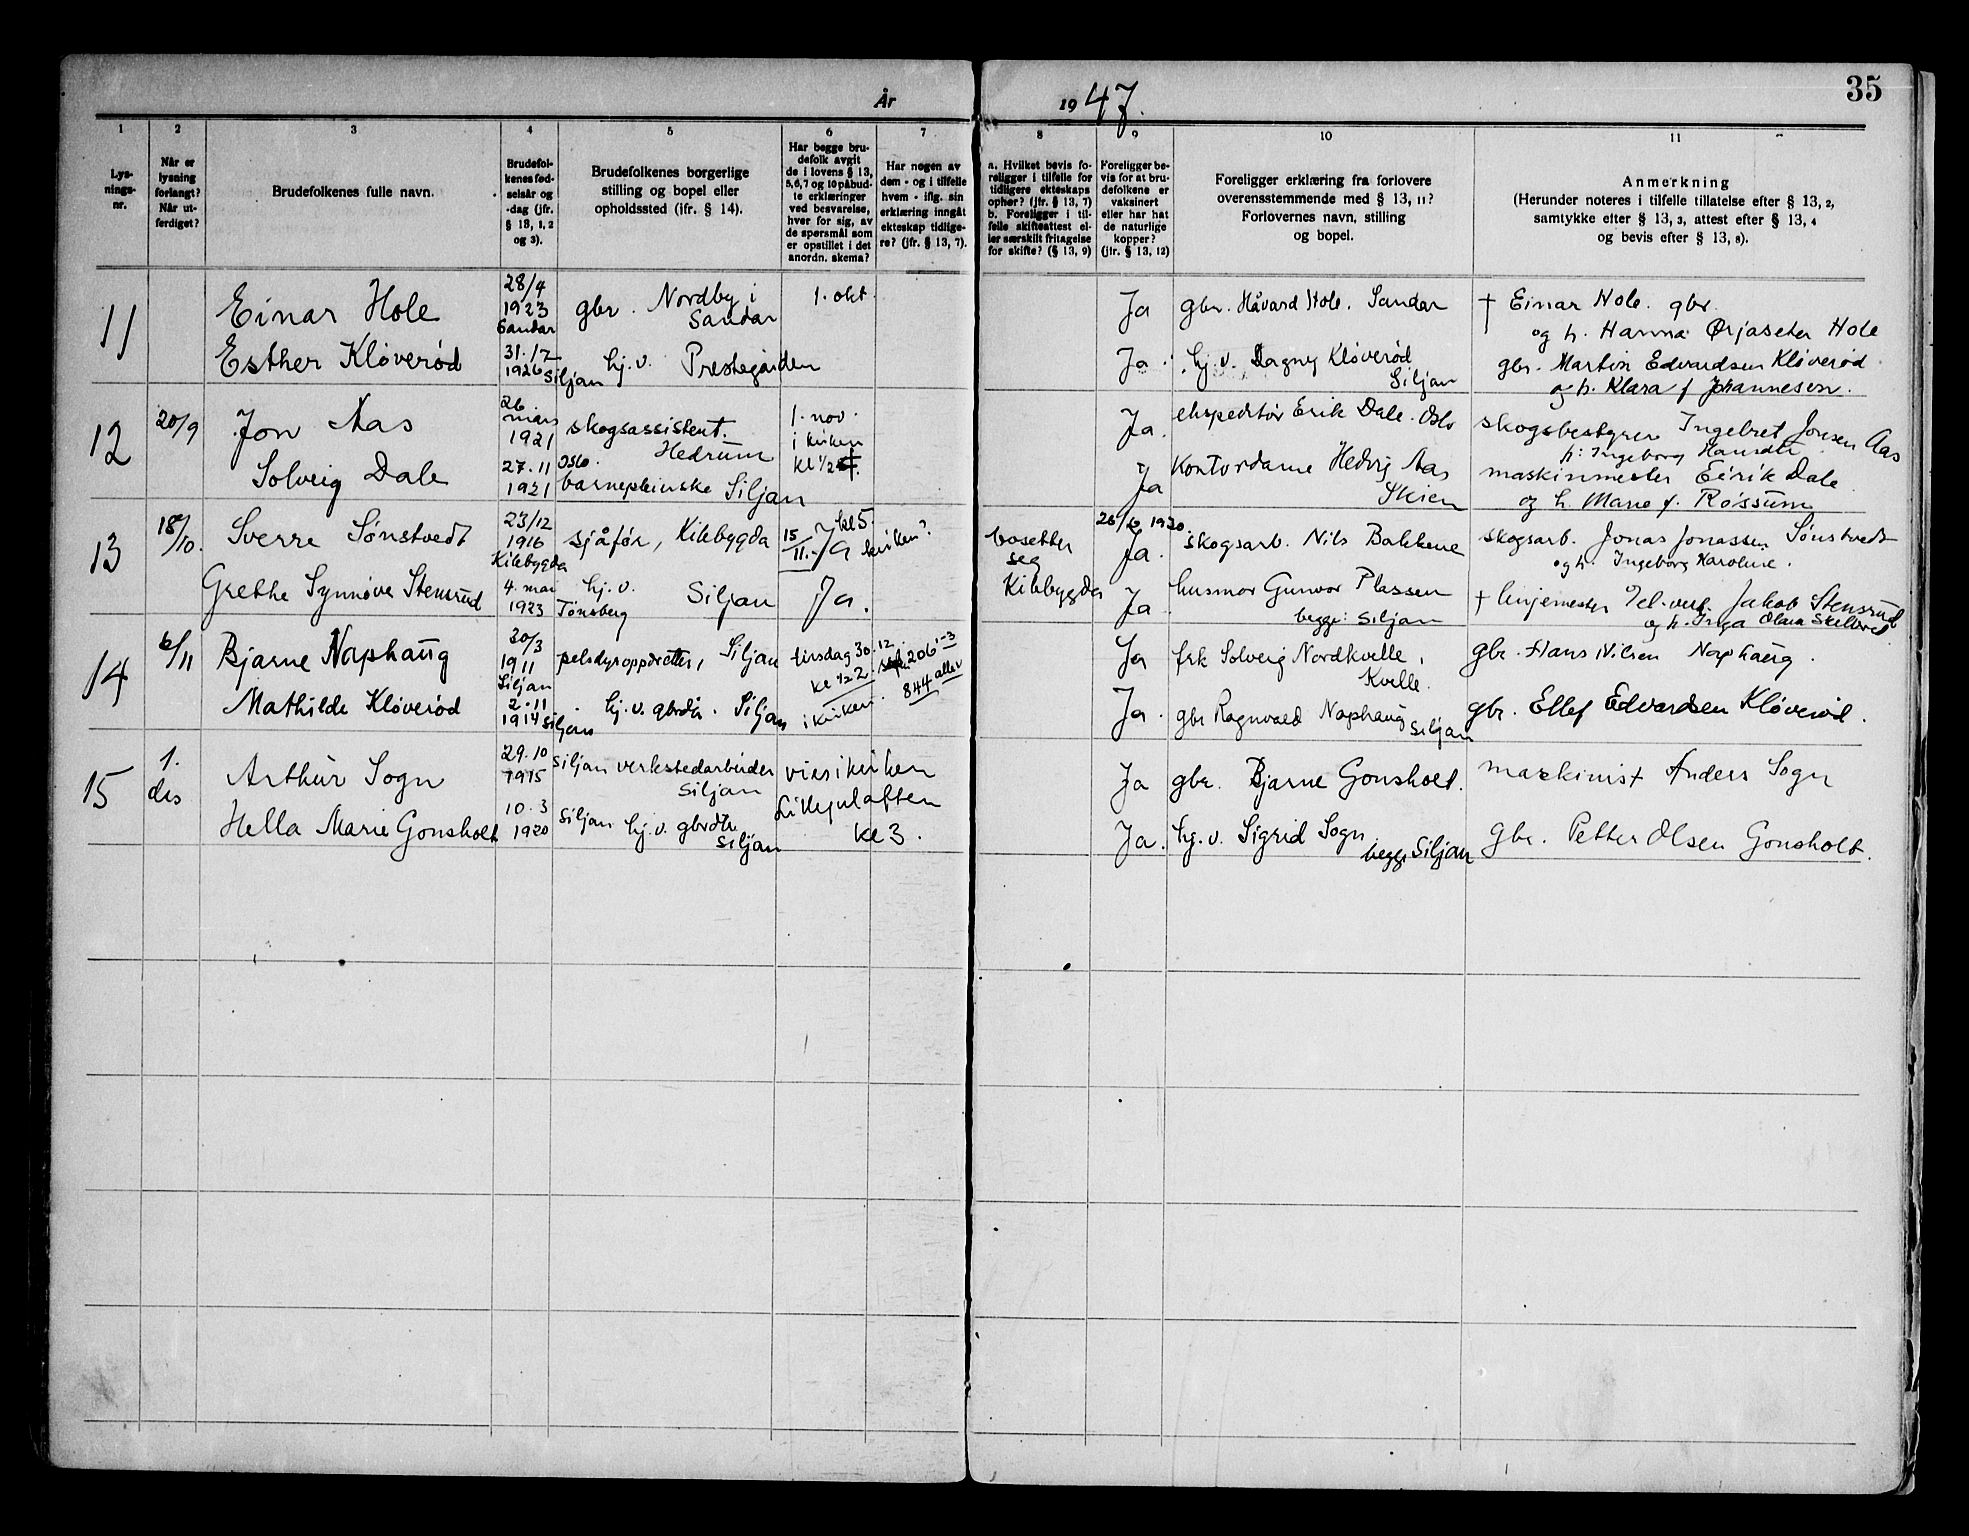 År 1947.
35
1 2 3 4 5 6 7 8 9 10 11
Lys-
nings-
nr.
Når er
lysning
forlangt?
Når ut-
ferdiget?
Brudefolkenes fulle navn.
Brudefol-
kenes fød-
selsår og
-dag (jfr.
§ 13, 1, 2
og 3).
Brudefolkenes borgerlige
stilling og bopel eller
opholdssted (ifr. § 14).
Har begge bru-
defolk avgit
de i lovens § 13,
5, 6, 7 og 10 påbud-
te erklæringer
ved besvarelse,
hver for sig, av
de spørsmål som
er opstillet i det
anordn. skema?
Har nogen av
dem - og i tilfelle
hvem - iflg. sin
erklæring inngått
ekteskap tidlige-
re? (jfr. § 13, 7).
a. Hvilket bevis fo-
religger i tilfelle for
tidligere ekteskaps
ophør? (jfr. § 13, 7)
b. Foreligger i til-
felle skifteattest el-
ler særskilt fritagelse
for skifte? (§ 13, 9)
Foreligger be-
vis for at bru-
defolkene er
vaksinert
eller har hat
de naturlige
kopper?
(jfr. § 13, 12)
Foreligger erklæring fra forlovere
overensstemmende med § 13, 11?
Forlovernes navn, stilling
og bopel.
Anmerkning
(Herunder noteres i tilfelle tillatelse efter § 13, 2,
samtykke efter § 13, 3, attest efter § 13, 4
og bevis efter § 13, 8).
11
Einar Hole
28/4
1923
Sandar
gbr. Nordby i
Sandar
1. okt.
Ja
gbr. Håvard Hole. Sandar
† Einar Hole. gbr.
og h. Hanna Ørjaseter Hole
Esther Kløverød
31.12
1926 Siljan
hj.v. Prestegården
Ja.
hj.v. Dagny Kløverød
Siljan
gbr. Martin Edvardsen Kløverød
og h. Klara f Johannesen.
12
20/9
Jon Aas
26.
mars
1921
skogsassistent.
Hedrum
1. nov.
i kirken
kl ½
Ja.
ekspeditør Erik Dale. Oslo
skogsbestyrer Ingebret Jonsen Aas
h: Ingeborg Hansdtr
Solveig Dale
27.11 Oslo.
1921
barnepleierske Siljan
Ja
Kontordame Hedvig Aas
Skien
maskinmester Eirik Dale
og h. Marie f. Rossum
13
18/10.
Sverre Sønstvedt
23/12
1916
Kilebygda
sjåfør, Kilebygda
15/11.- Ja kl 5.
kirken?
bosetter
seg
Kilebygda
1920.
Ja.
skogsarb. Nils Bakkene
skogsarb. Jonas Jonassen Sønstvedt
og h. Ingeborg Karoline.
Grethe Synnøve Stensrud
4. mai
1923 Tønsberg
hj.v.
Siljan
Ja.
Ja
husmor Gunvor Plassen
begge: Siljan
† linjemester Tel.verk. Jakob Stensrud
og h. Inga Olava
14
6/11
Bjarne Naphaug
20/3
1911
Siljan
pelsdyroppdretter, Siljan
tirsdag 30.12
kl ½ 2
i kirken
206 1-3
844 alle v
Ja
frk Solveig Nordkvelle,
Kvelle.
gbr. Hans Nilsen Naphaug.
Mathilde Kløverød
2.11
1914 Siljan
hj.v. gbrdtr. Siljan
Ja.
gbr Ragnvald Naphaug Siljan
gbr. Ellef Edvardsen Kløverød.
15
1.
des
Arthur Sogn
29.10
1915
Siljan verkstedarbeider
Siljan
vies i kirken
Lillejulaften
kl 3.
Ja
gbr. Bjarne Gonsholt.
maskinist Anders Sogn
Hella Marie Gonsholt
10.3
1920
Siljan hj.v. gbrdtr.
Siljan
Ja.
hj.v. Sigrid Sogn
begge Siljan
Gbr. Petter Olsen Gonsholt.